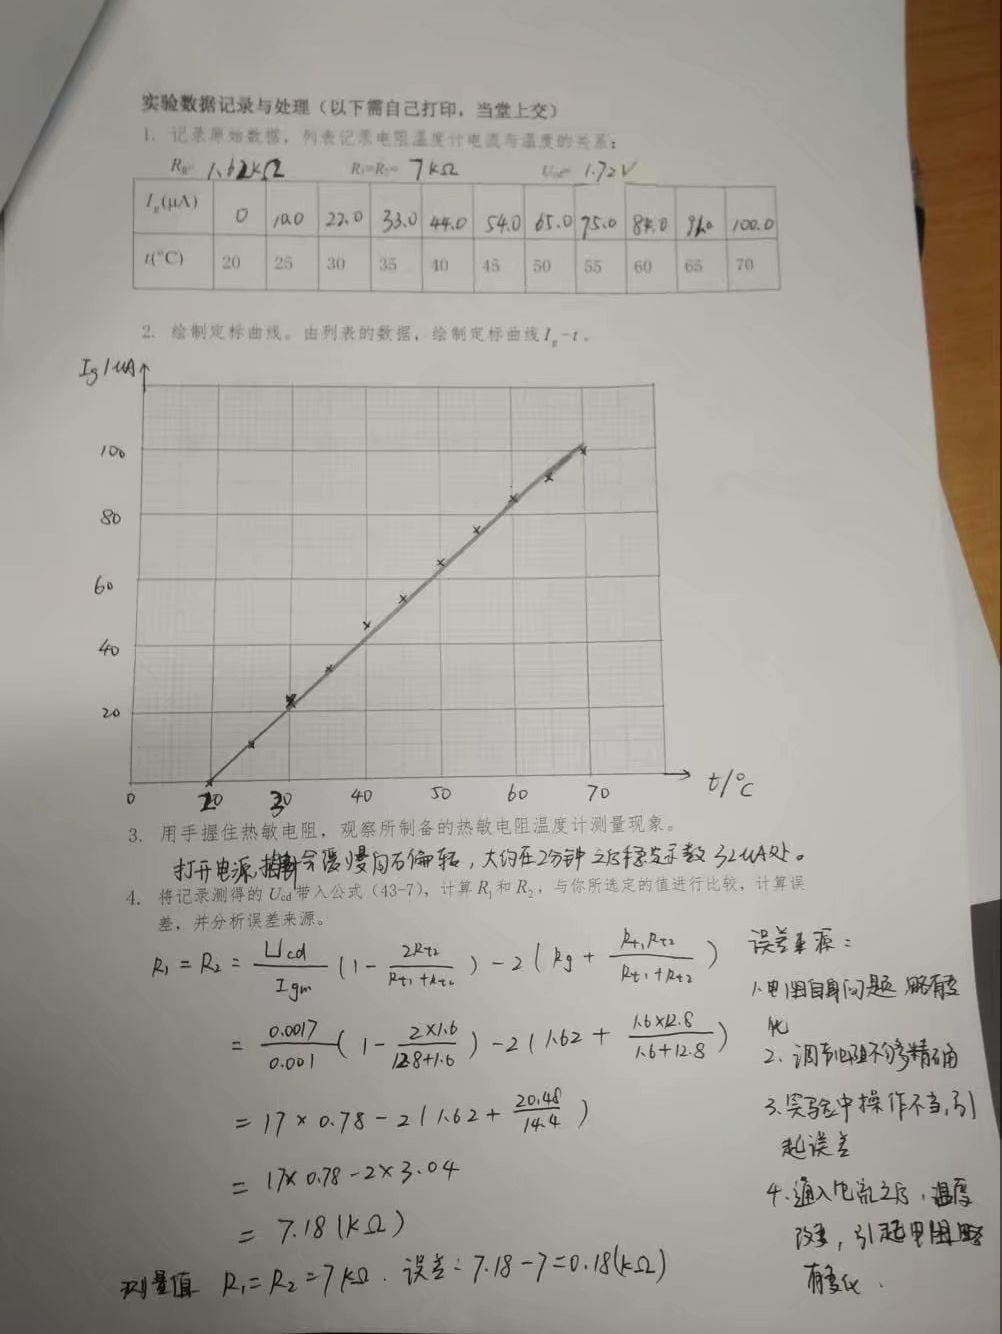 实验数据记录与处理（以下需自己打印，当堂上交）
1. 记录原始数据，列表记录电阻温度计电流与温度的关系：
Rg= 1.62kΩ R₁=R₂= 7kΩ Ucd= 1.72V
Ig(μA) 0 10.0 22.0 33.0 44.0 54.0 65.0 75.0 84.0 91.0 100.0
t(°C) 20 25 30 35 40 45 50 55 60 65 70
2. 绘制定标曲线。由列表的数据，绘制定标曲线Ig-t。
Ig/μA
100
80
60
40
20
0 20 30 40 50 60 70 t/°C
3. 用手握住热敏电阻，观察所制备的热敏电阻温度计测量现象。
打开电源,指针会缓慢向右偏转，大约在2分钟之后稳定示数32μA处。
4. 将记录测得的Ucd带入公式（43-7），计算R₁和R₂，与你所选定的值进行比较，计算误
差，并分析误差来源。
R₁ = R₂ = Ucd/Igm (1 - 2Rt₂/(Rt₁+Rt₂)) - 2(Rg + Rt₁Rt₂/(Rt₁+Rt₂))
= 0.0017/0.001 (1 - 2×1.6/(12.8+1.6)) - 2(1.62 + 1.6×12.8/(1.6+12.8))
= 17 × 0.78 - 2(1.62 + 20.48/14.4)
= 17×0.78 - 2×3.04
= 7.18(kΩ)
测量值 R₁ = R₂ = 7kΩ. 误差：7.18-7=0.18(kΩ)
误差来源：
1.电阻自身问题,略有变
化
2.调节电阻不够精确
3.实验中操作不当,引
起误差
4.通入电流之后，温度
改变，引起电阻略
有变化.